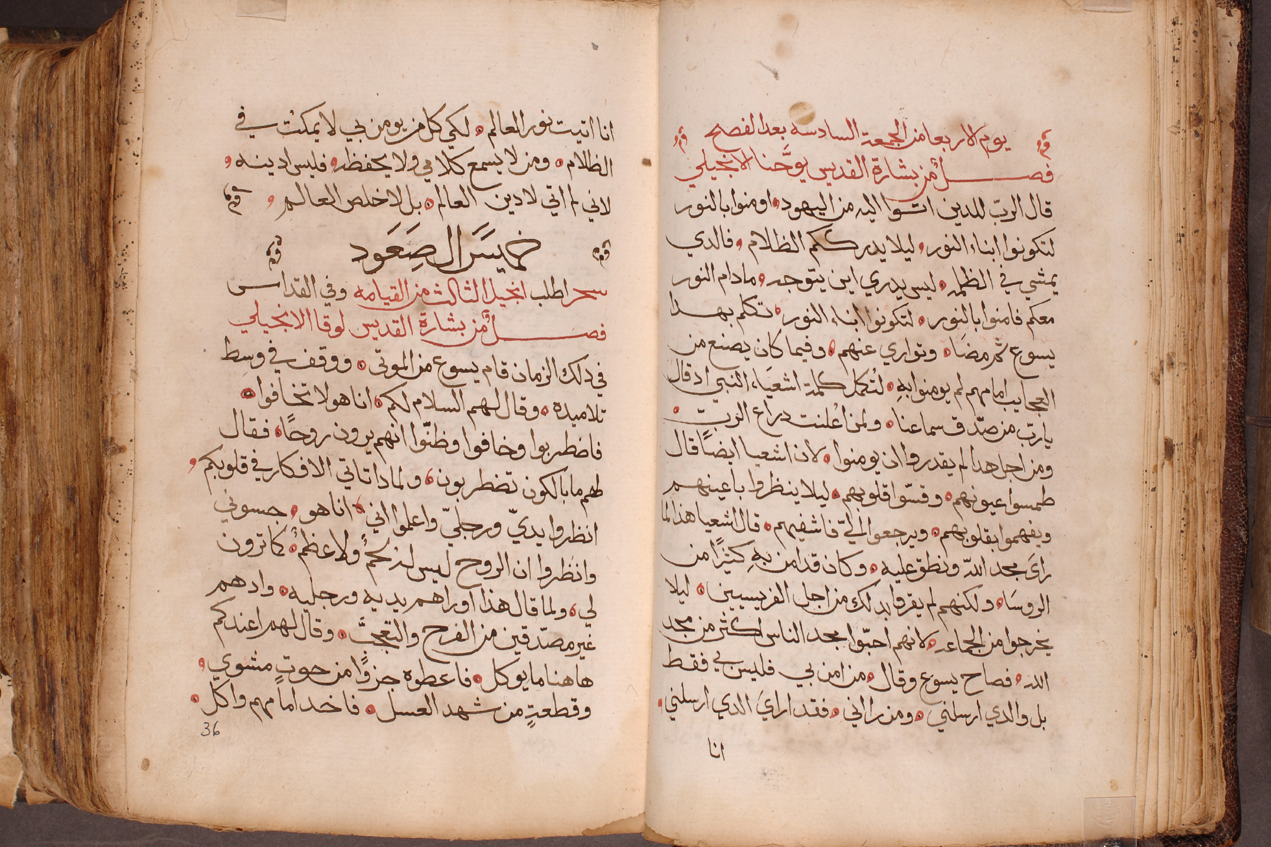 يوم الاربعا من الجمعة السادسه بعد الفصح
فصل أمن بشارة القديس يوحَّنا الانجيلي
قال الربّ للدين اتوا اليه من اليهود اومنوا بالنور
لتكونوا ابناء النور ليلا يدرككم الظلام فالدي
يمشي في الظلمه ليس يدري اين يتوجه مادام النور
معكم فامنوا بالنور لتكونوا ابناء النور تكلم بهدا
يسوع ثم مضا وتواري عنهم وفيما كان يصنع من
العجايب امامهم لم يومنوا به لتكمل كلمة اشعياء النبي اد قال
يارب من صدّق سماعنا ولمن اعلنت دراع الرب
ومن اجل هدا لم يقدروا ان يومنوا لان اشعيا ايضًا قال
طمسوا عيونهم وقستوا قلوبهم ليلا ينظروا باعينهم
ويفهموا بقلوبهم ويرجعوا الي فاشفيهم قال اشعيا هذا لما
راى مجد الله ونطق عليه وكان قد امن به كثيرًا من
الروسا ولكنهم لم يقروا بدلك من اجل الفريسيين ليلا
يخرجوا من الجماعه لانهم احبّوا مجد الناس اكثر من مجد
الله فصاح يسوع وقال من امن بي فليس بي فقط
بل والدي ارسلني ومن راني فقد راي الدي ارسلني
انا
انا اتيت نور العالم لكي كل من يومن بي لا يمكث في
الظلام ومن لا يسمع كلامي ولا يحفظ فليس ادينه
لاني لم اتي لادين العالم بل لاخلص العالم
خميسَ الصِعَود
سحر اطلب انجيل الثالث من القيامه وفي القداس
فصل أمن بشارة القديس لوقا الانجيلي
في دلك الزمان قام يسوع من الموتى ووقف في وسط
تلاميده وقال لهم السلام لكم انا هو لا تخافوا
فاضطربوا وخافوا وظنّوا انهم يرون روحًا فقال
لهم ما بالكون تضطربون ولمادا تاتي الافكار في قلوبكم
انظروا يديّ ورجليّ واعلموا اني انا هو حسوني
وانظروا ان الروح ليس لد لحمٌ ولا عظمٌ كما ترون
لي ولما قال هذا اوراهم يديه ورجليه واد هم
غير مصدّقين من الفرح والتعجّب وقال لهم اعندكم
هاهنا ما يوكل فاعطوه جزوًا من حوتٍ مشوي
وقطعةٍ من شهد العسل فاخد امامهم واكل
36